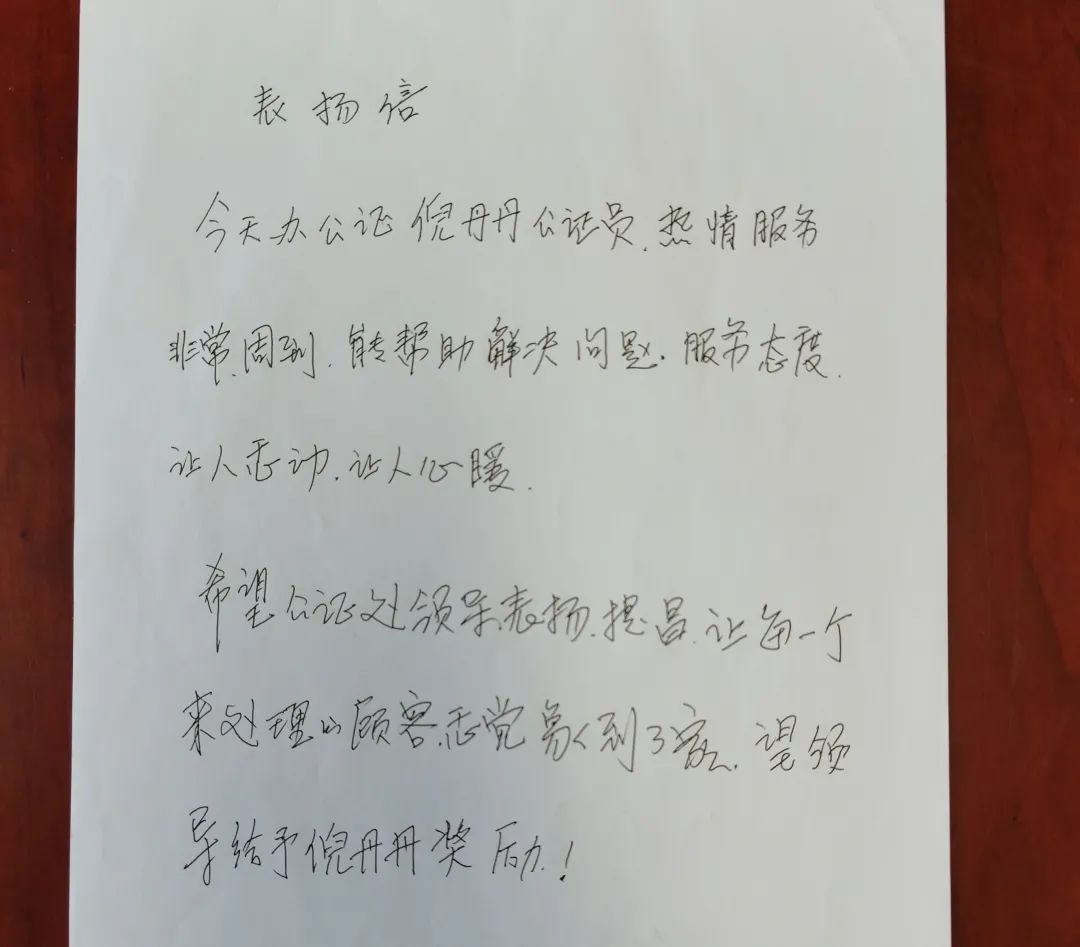 表扬信
今天办公证倪丹丹公证员.热情服务
非常周到.能帮助解决问题.服务态度.
让人感动.让人心暖.
希望公证处领导.表扬.提昌.让每一个
来处理的顾客.感觉象到了家.望领
导给予倪丹丹奖励!